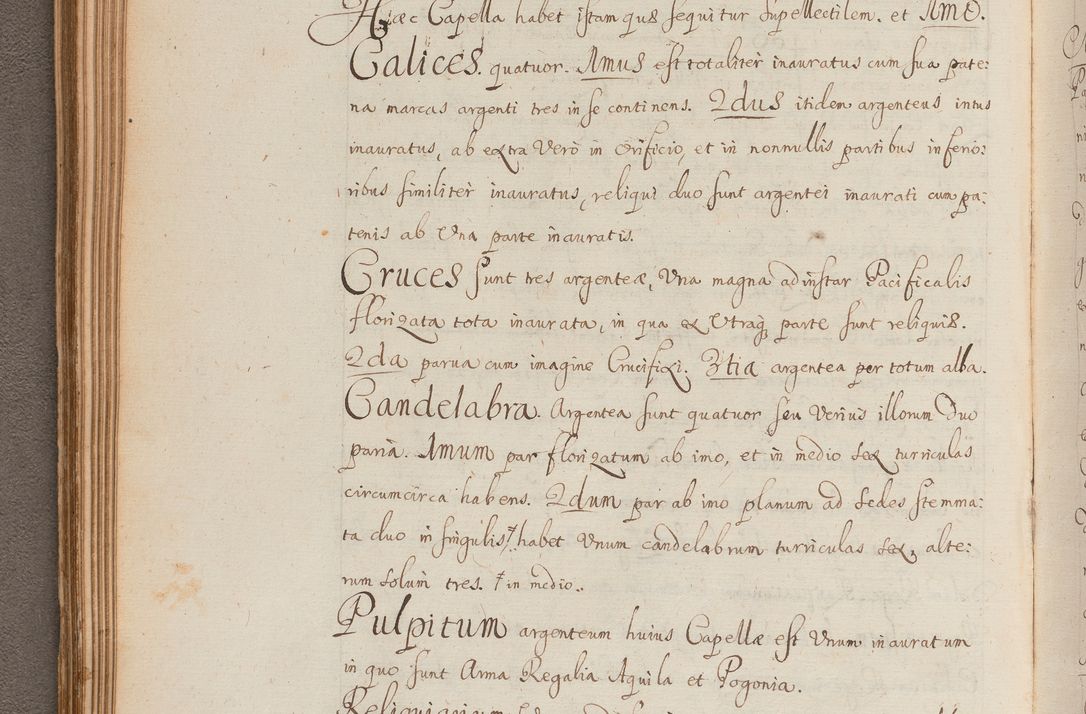 Hæc Capella habet istam quæ sequitur supellectilem. et Imo.
Calices. quatuor. Imus est totaliter inauratus cum sua pate:
na marcas argenti tres in se continens. 2dus itidem argenteus intus
inauratus, ab extra Verò in Orificio, et in nonnullis partibus inferio:
ribus similiter inauratus, reliqui duo sunt argentei inaurati cum pa:
tenis ab Una parte inauratis.
Cruces sunt tres argenteæ, Una magna ad instar Pacificalis
florizata tota inaurata, in qua ex Utraq parte sunt reliquiæ.
2da parua cum imagine Crucifixi. 3tia argentea per totum alba.
Candelabra. Argentea sunt quatuor seu Verius illorum Duo
paria. Imum par florizatum ab imo, et in medio sex turriculas
circumcirca habens. 2dum par ab imo planum ad sedes stemma:
ta duo in singulis, ‡ habet Unum candelabrum turriculas sex, alte:
rum solum tres. ‡ in medio.
Pulpitum argenteum huius Capellæ est Unum inauratum
in quo sunt Arma Regalia Aquila et Pogonia.